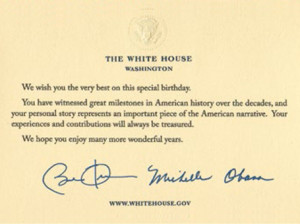 THE WHITE HOUSE
WASHINGTON
We wish you the very best on this special birthday.
You have witnessed great milestones in American history over the decades, and
your personal story represents an important piece of the American narrative. Your
experiences and contributions will always be treasured.
We hope you enjoy many more wonderful years.
Michelle Obama
WWW.WHITEHOUSE.GOV